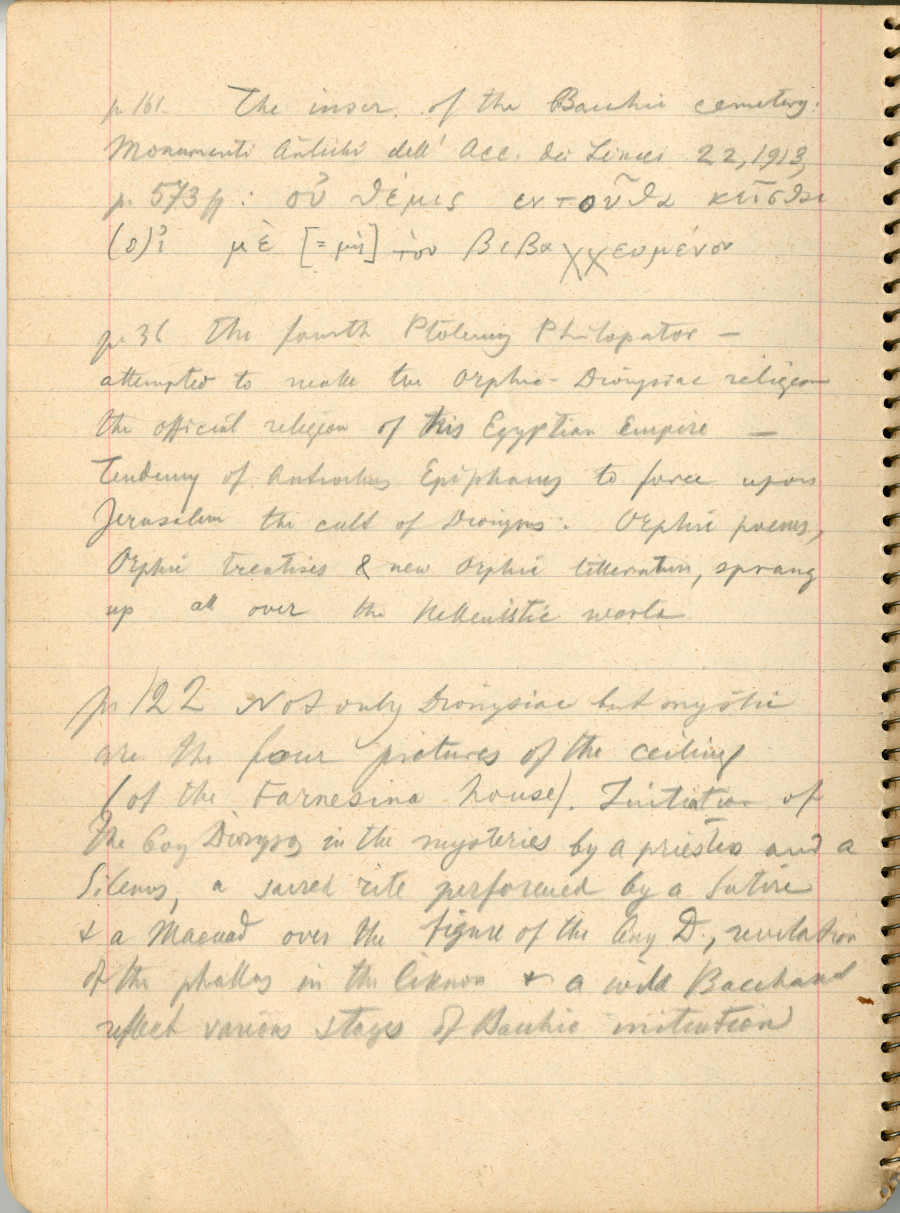 p. 161. The inscr. of the Bacchic cemetery:
Monumenti Antichi dell' Acc. dei Lincei 22, 1913,
p. 573 ff: οὐ θέμις εντοῦθα κεῖσθαι
(ε)ἰ μὲ [= μὴ] τὸν βεβαχχευμένον
p. 36 The fourth Ptolemy Philopator –
attempted to make the Orphic-Dionysiac religion
the official religion of his Egyptian Empire –
Tendency of Antiochus Epiphanes to force upon
Jerusalem the cult of Dionysus. Orphic poems,
Orphic treatises & new Orphic litterature, sprang
up all over the Hellenistic world
p. 122 Not only Dionysiac but mystic
are the four pictures of the ceiling
(of the Farnesina house). Initiation of
the boy Dionysos in the mysteries by a priestess and a
Silenus, a sacred rite performed by a Satire
& a Maenad over the figure of the boy D., revelation
of the phallus in the liknon & a wild Bacchanal
reflect various stages of Bacchic initiation